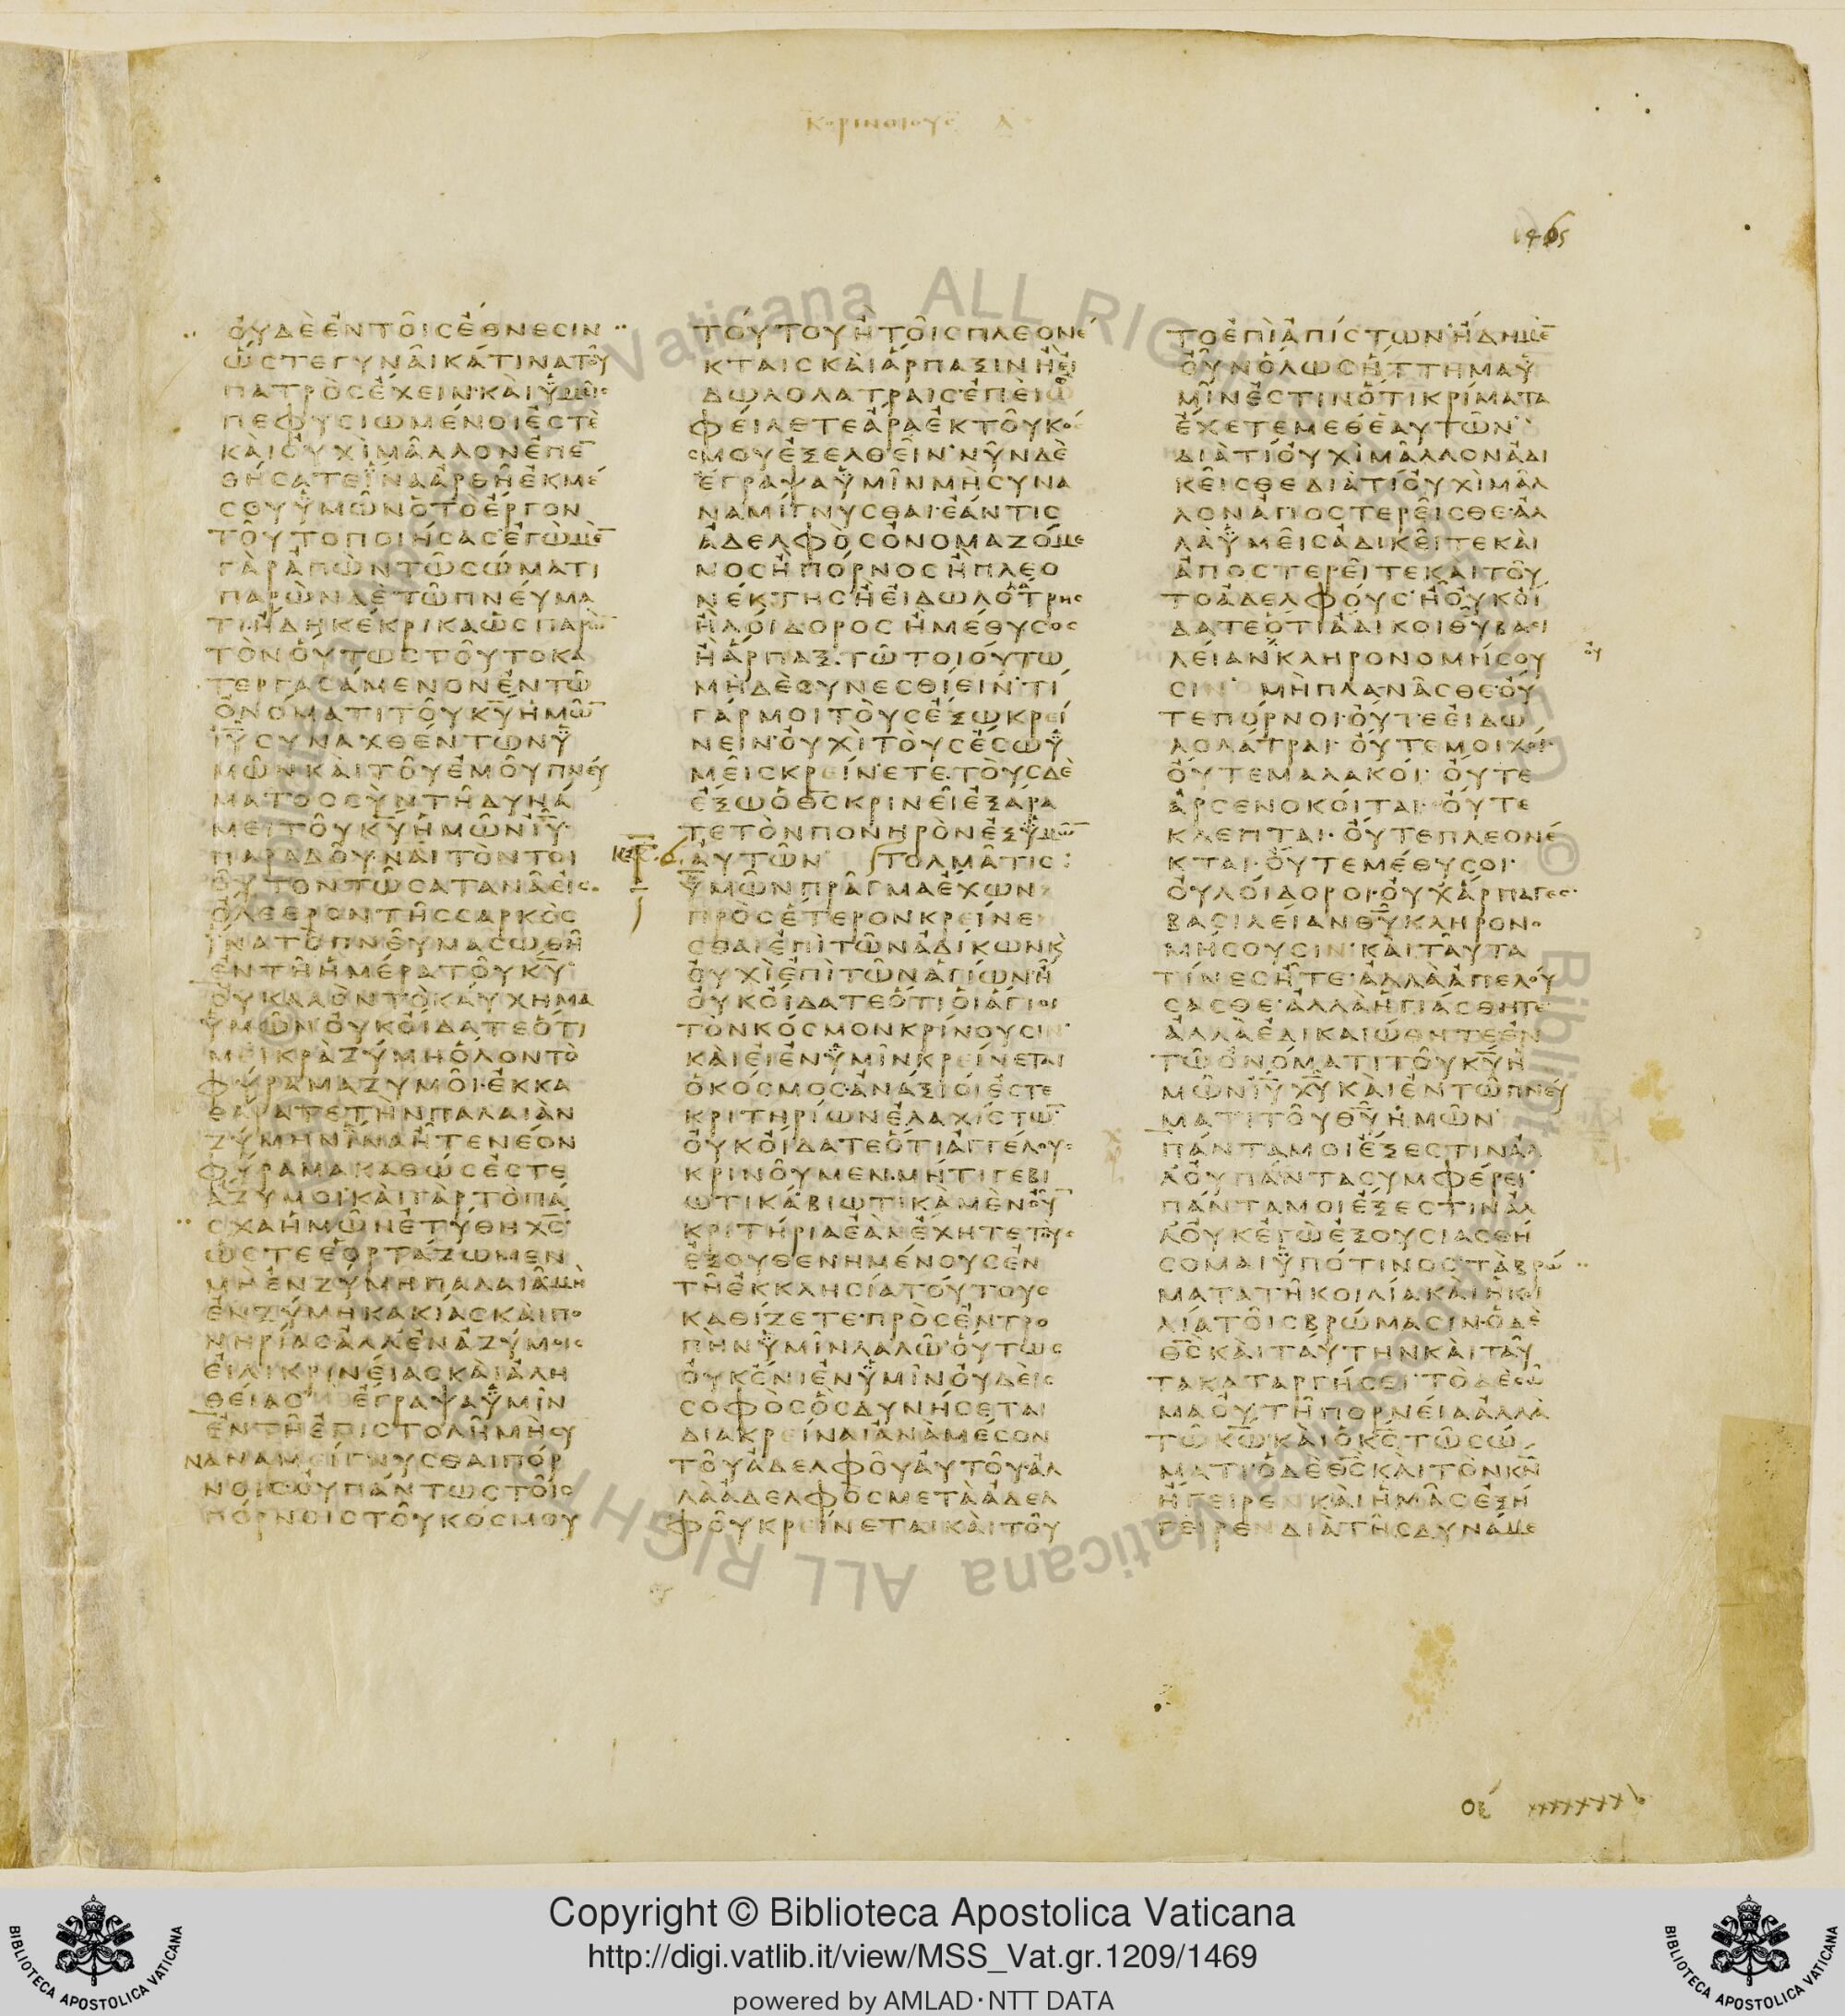 Κορινθιους Α
1465
ουδε εν τοις εθνεσιν
ωστε γυναικα τινα του
πατρος εχειν· και ϋμεις
πεφυσιωμενοι εστε
και ουχι μαλλον επε̅
θησατε ϊνα αρθη εκ με
σου ϋμων ο το εργον
τουτο ποιησας· εγω με̅
γαρ απων τω σωματι
παρων δε τω πνευμα
τι· ηδη κεκρικα ως παρω̅
τον ουτως τουτο κα
τεργασαμενον εν τω
ονοματι του κ̅υ̅ ημω̅
ι̅υ̅ συναχθεντων ϋ
μων και του εμου πνευ
ματος συν τη δυνα
μει του κ̅υ̅ ημων ι̅υ̅·
παραδουναι τον τοι
ουτον τω σατανα εις
ολεθρον της σαρκος
ϊνα το πνευμα σωθη
εν τη ημερα του κ̅υ̅·
ου καλον το καυχημα
ϋμων· ουκ οιδατε οτι
μεικρα ζυμη ολον το
φυραμα ζυμοι· εκκα
θαρατε την παλαιαν
ζυμην ϊνα ητε νεον
φυραμα καθως εστε
αζυμοι· και γαρ το πα
σχα ημων ετυθη χ̅ς̅·
ωστε εορταζωμεν
μη εν ζυμη παλαια μη
εν ζυμη κακιας και πο
νηριας αλλ εν αζυμοις
ειλικρινειας και αλη
θειας εγραψα ϋμιν
εν τη επιστολη μη συ
ναναμειγνυσθαι πορ
νοις· ου παντως τοις
πορνοις του κοσμου
τουτου η τοις πλεονε
κταις και αρπαξιν η ει
δωλολατραις· επει ω
φειλετε αρα εκ του κο
σμου εξελθειν· νυν δε
εγραψα ϋμιν μη συνα
ναμιγνυσθαι· εαν τις
αδελφος ονομαζομε
νος η πορνος η πλεο
νεκτης η ειδωλολατρης
η λοιδορος η μεθυσος
η αρπαξ· τω τοιουτω
μηδε συνεσθιειν· τι
γαρ μοι τους εξω κρει
νειν· ουχι τους εσω ϋ
μεις κρεινετε· τους δε
εξω ο θ̅ς̅ κρινει εξαρα
τε τον πονηρον εξ ϋμω̅
αυτων τολμα τις
ϋμων πραγμα εχων
προς ετερον κρεινε
σθαι επι των αδικων κ
ουχι επι των αγιων· η
ουκ οιδατε οτι οι αγιοι
τον κοσμον κρινουσιν·
και ει εν ϋμιν κρεινεται
ο κοσμος· αναξιοι εστε
κριτηριων ελαχιστω̅
ουκ οιδατε οτι αγγελους
κρινουμεν· μητιγε βι
ωτικα· βιωτικα μεν ου̅
κριτηρια εαν εχητε τους
εξουθενημενους εν
τη εκκλησια τουτους
καθιζετε· προς εντρο
πην ϋμιν λαλω· ουτως
ουκ ενι εν ϋμιν ουδεις
σοφος ος δυνησεται
διακρειναι ανα μεσον
του αδελφου αυτου· αλ
λα αδελφος μετα αδελ
φου κρεινεται και του
το επι απιστων· ηδη με̅
ουν ολως ηττημα ϋ
μιν εστιν οτι κριματα
εχετε μεθ εαυτων·
δια τι ουχι μαλλον αδι
κεισθε δια τι ουχι μαλ
λον αποστερεισθε· αλ
λα ϋμεις αδικειτε και
αποστερειτε και του
το αδελφους· η ουκ οι
δατε οτι αδικοι θ̅υ̅ βασι
λειαν κληρονομησου
ου
σιν· μη πλανασθε· ου
τε πορνοι· ουτε ειδω
λολατραι· ουτε μοιχοι·
ουτε μαλακοι· ουτε
αρσενοκοιται· ουτε
κλεπται· ουτε πλεονε
κται· ουτε μεθυσοι·
ου λοιδοροι· ουχ αρπαγες·
βασιλειαν θ̅υ̅ κληρονο
μησουσιν· και ταυτα
τινες ητε· αλλα απελου
σασθε· αλλα ηγιασθητε·
αλλα εδικαιωθητε· εν
τω ονοματι του κ̅υ̅ η
μων ι̅υ̅ χ̅υ̅ και εν τω πνευ
ματι του θ̅υ̅ ημων·
παντα μοι εξεστιν αλ
λ ου παντα συμφερει·
παντα μοι εξεστιν αλ
λ ουκ εγω εξουσιασθη
σομαι ϋπο τινος τα βρω
ματα τη κοιλια και η κοι
λια τοις βρωμασιν· ο δε
θ̅ς̅ και ταυτην και ταυ
τα καταργησει· το δε σω
μα ου τη πορνεια αλλα
τω κ̅ω̅· και ο κ̅ς̅ τω σω
ματι· ο δε θ̅ς̅ και τον κ̅ν̅
ηγειρεν και ημας εξη
γειρεν δια της δυναμε
Copyright © Biblioteca Apostolica Vaticana
http://digi.vatlib.it/view/MSS_Vat.gr.1209/1469
powered by AMLAD·NTT DATA
BIBLIOTECA APOSTOLICA VATICANA
BIBLIOTECA APOSTOLICA VATICANA